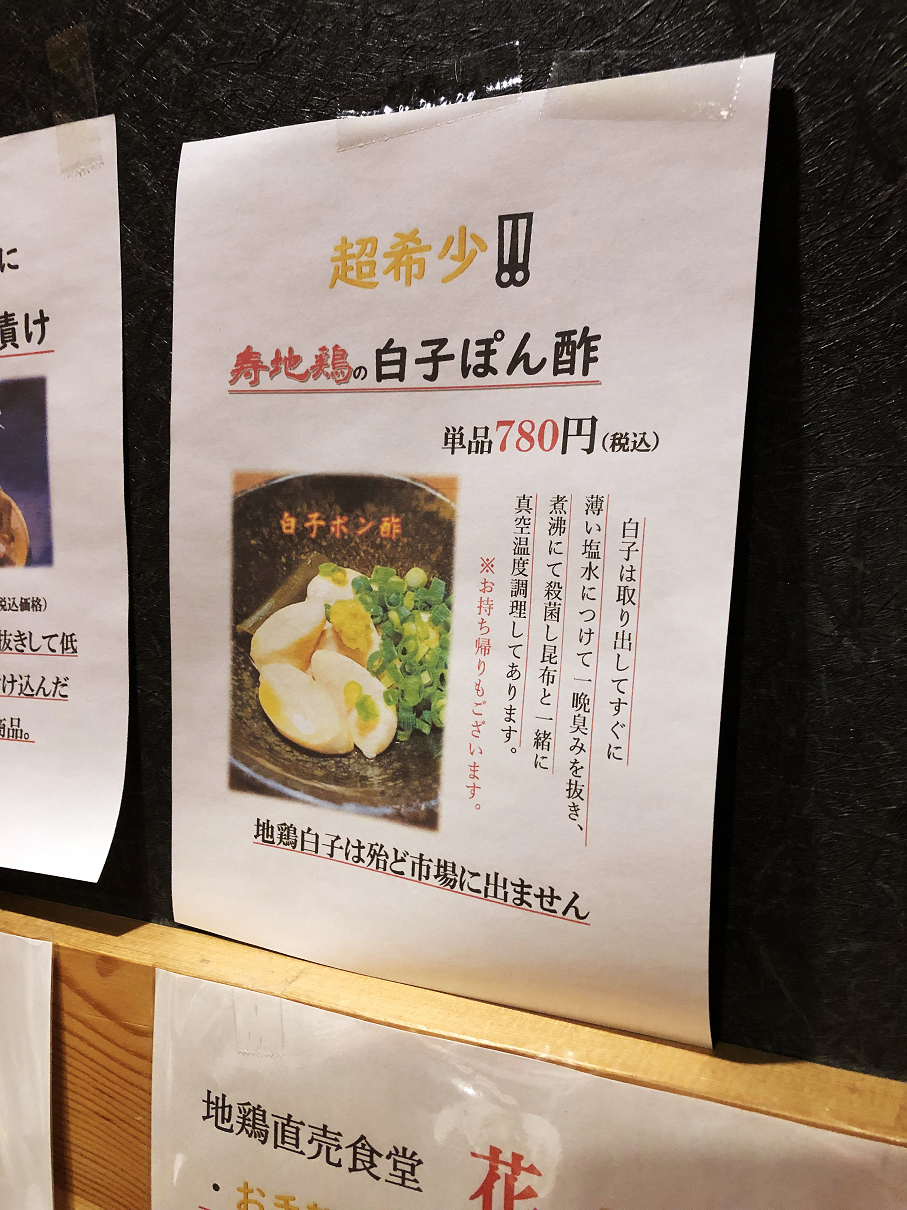 超希少!!!
寿地鶏の白子ぽん酢
単品780円(税込)
白子ポン酢
白子は取り出してすぐに
薄い塩水につけて一晩臭みを抜き、
煮沸にて殺菌し昆布と一緒に
真空温度調理してあります。
※お持ち帰りもございます。
地鶏白子は殆ど市場に出ません
に
漬け
税込価格)
抜きして低
け込んだ
商品。
地鶏直売食堂
花
・お